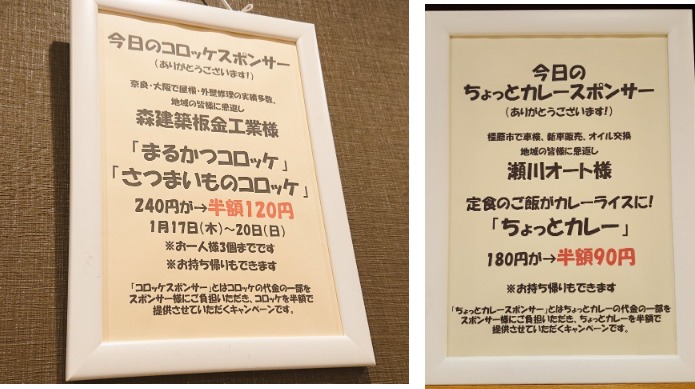 今日のコロッケスポンサー
(ありがとうございます!)
奈良・大阪で屋根・外壁修理の実績多数、
地域の皆様に恩返し
森建築板金工業様
「まるかつコロッケ」
「さつまいものコロッケ」
240円が→半額120円
1月17日(木)～20日(日)
※お一人様3個までです
※お持ち帰りもできます
「コロッケスポンサー」とはコロッケの代金の一部を
スポンサー様にご負担いただき、コロッケを半額で
提供させていただくキャンペーンです。
今日の
ちょっとカレースポンサー
(ありがとうございます!)
橿原市で車検、新車販売、オイル交換
地域の皆様に恩返し
瀬川オート様
定食のご飯がカレーライスに!
「ちょっとカレー」
180円が→半額90円
※お持ち帰りもできます
「ちょっとカレースポンサー」とはちょっとカレーの代金の一部を
スポンサー様にご負担いただき、ちょっとカレーを半額で
提供させていただくキャンペーンです。